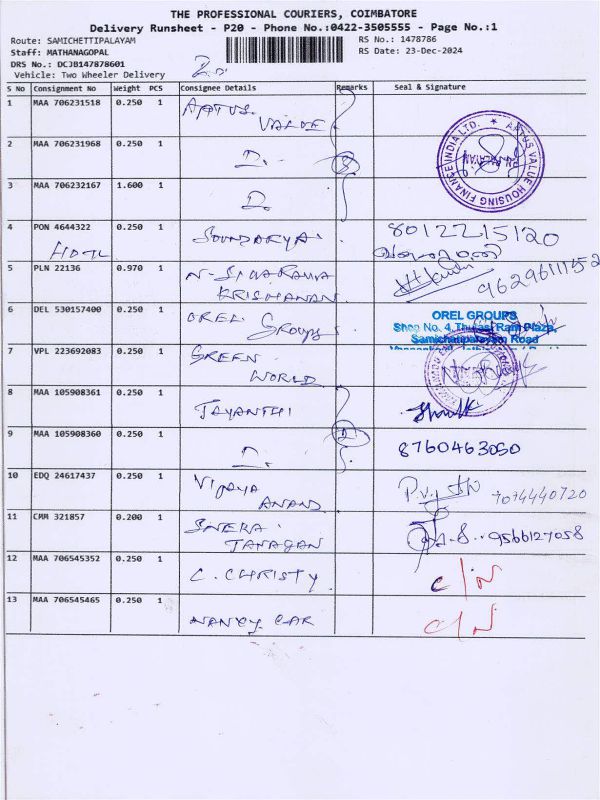 THE PROFESSIONAL COURIERS, COIMBATORE
Delivery Runsheet - P20 - Phone No.:0422-3505555 - Page No.:1
Route: SAMICHETTIPALAYAM
RS No.: 1478786
Staff: MATHANAGOPAL
RS Date: 23-Dec-2024
DRS No.: DCJB147878601
Vehicle: Two Wheeler Delivery
S No Consignment No Weight PCS Consignee Details Remarks Seal & Signature
1 MAA 706231518 0.250 1 APTUS VALUE
APTUS VALUE HOUSING FINANCE INDIA LTD.
2 MAA 706231968 0.250 1 D. 3
3 MAA 706232167 1.600 1 D.
4 PON 4644322 0.250 1 SOUNDARYA 8012215120
5 PLN 22136 0.970 1 N-SIVARAMA KRISHANAN
6 DEL 530157400 0.250 1 OREL Groups
OREL GROUPS
Shop No. 4, Thulasi Ram Plaza,
Samichettipalayam Road
7 VPL 223692083 0.250 1 GREEN WORLD
8 MAA 105908361 0.250 1 JAYANTHI
9 MAA 105908360 0.250 1 D. 2 8760463050
10 EDQ 24617437 0.250 1 VIJAYA ANAND 7074440720
11 CMM 321857 0.200 1 9566127058
12 MAA 706545352 0.250 1 C. CHRISTY C/N
13 MAA 706545465 0.250 1 NANCY CAR C/N